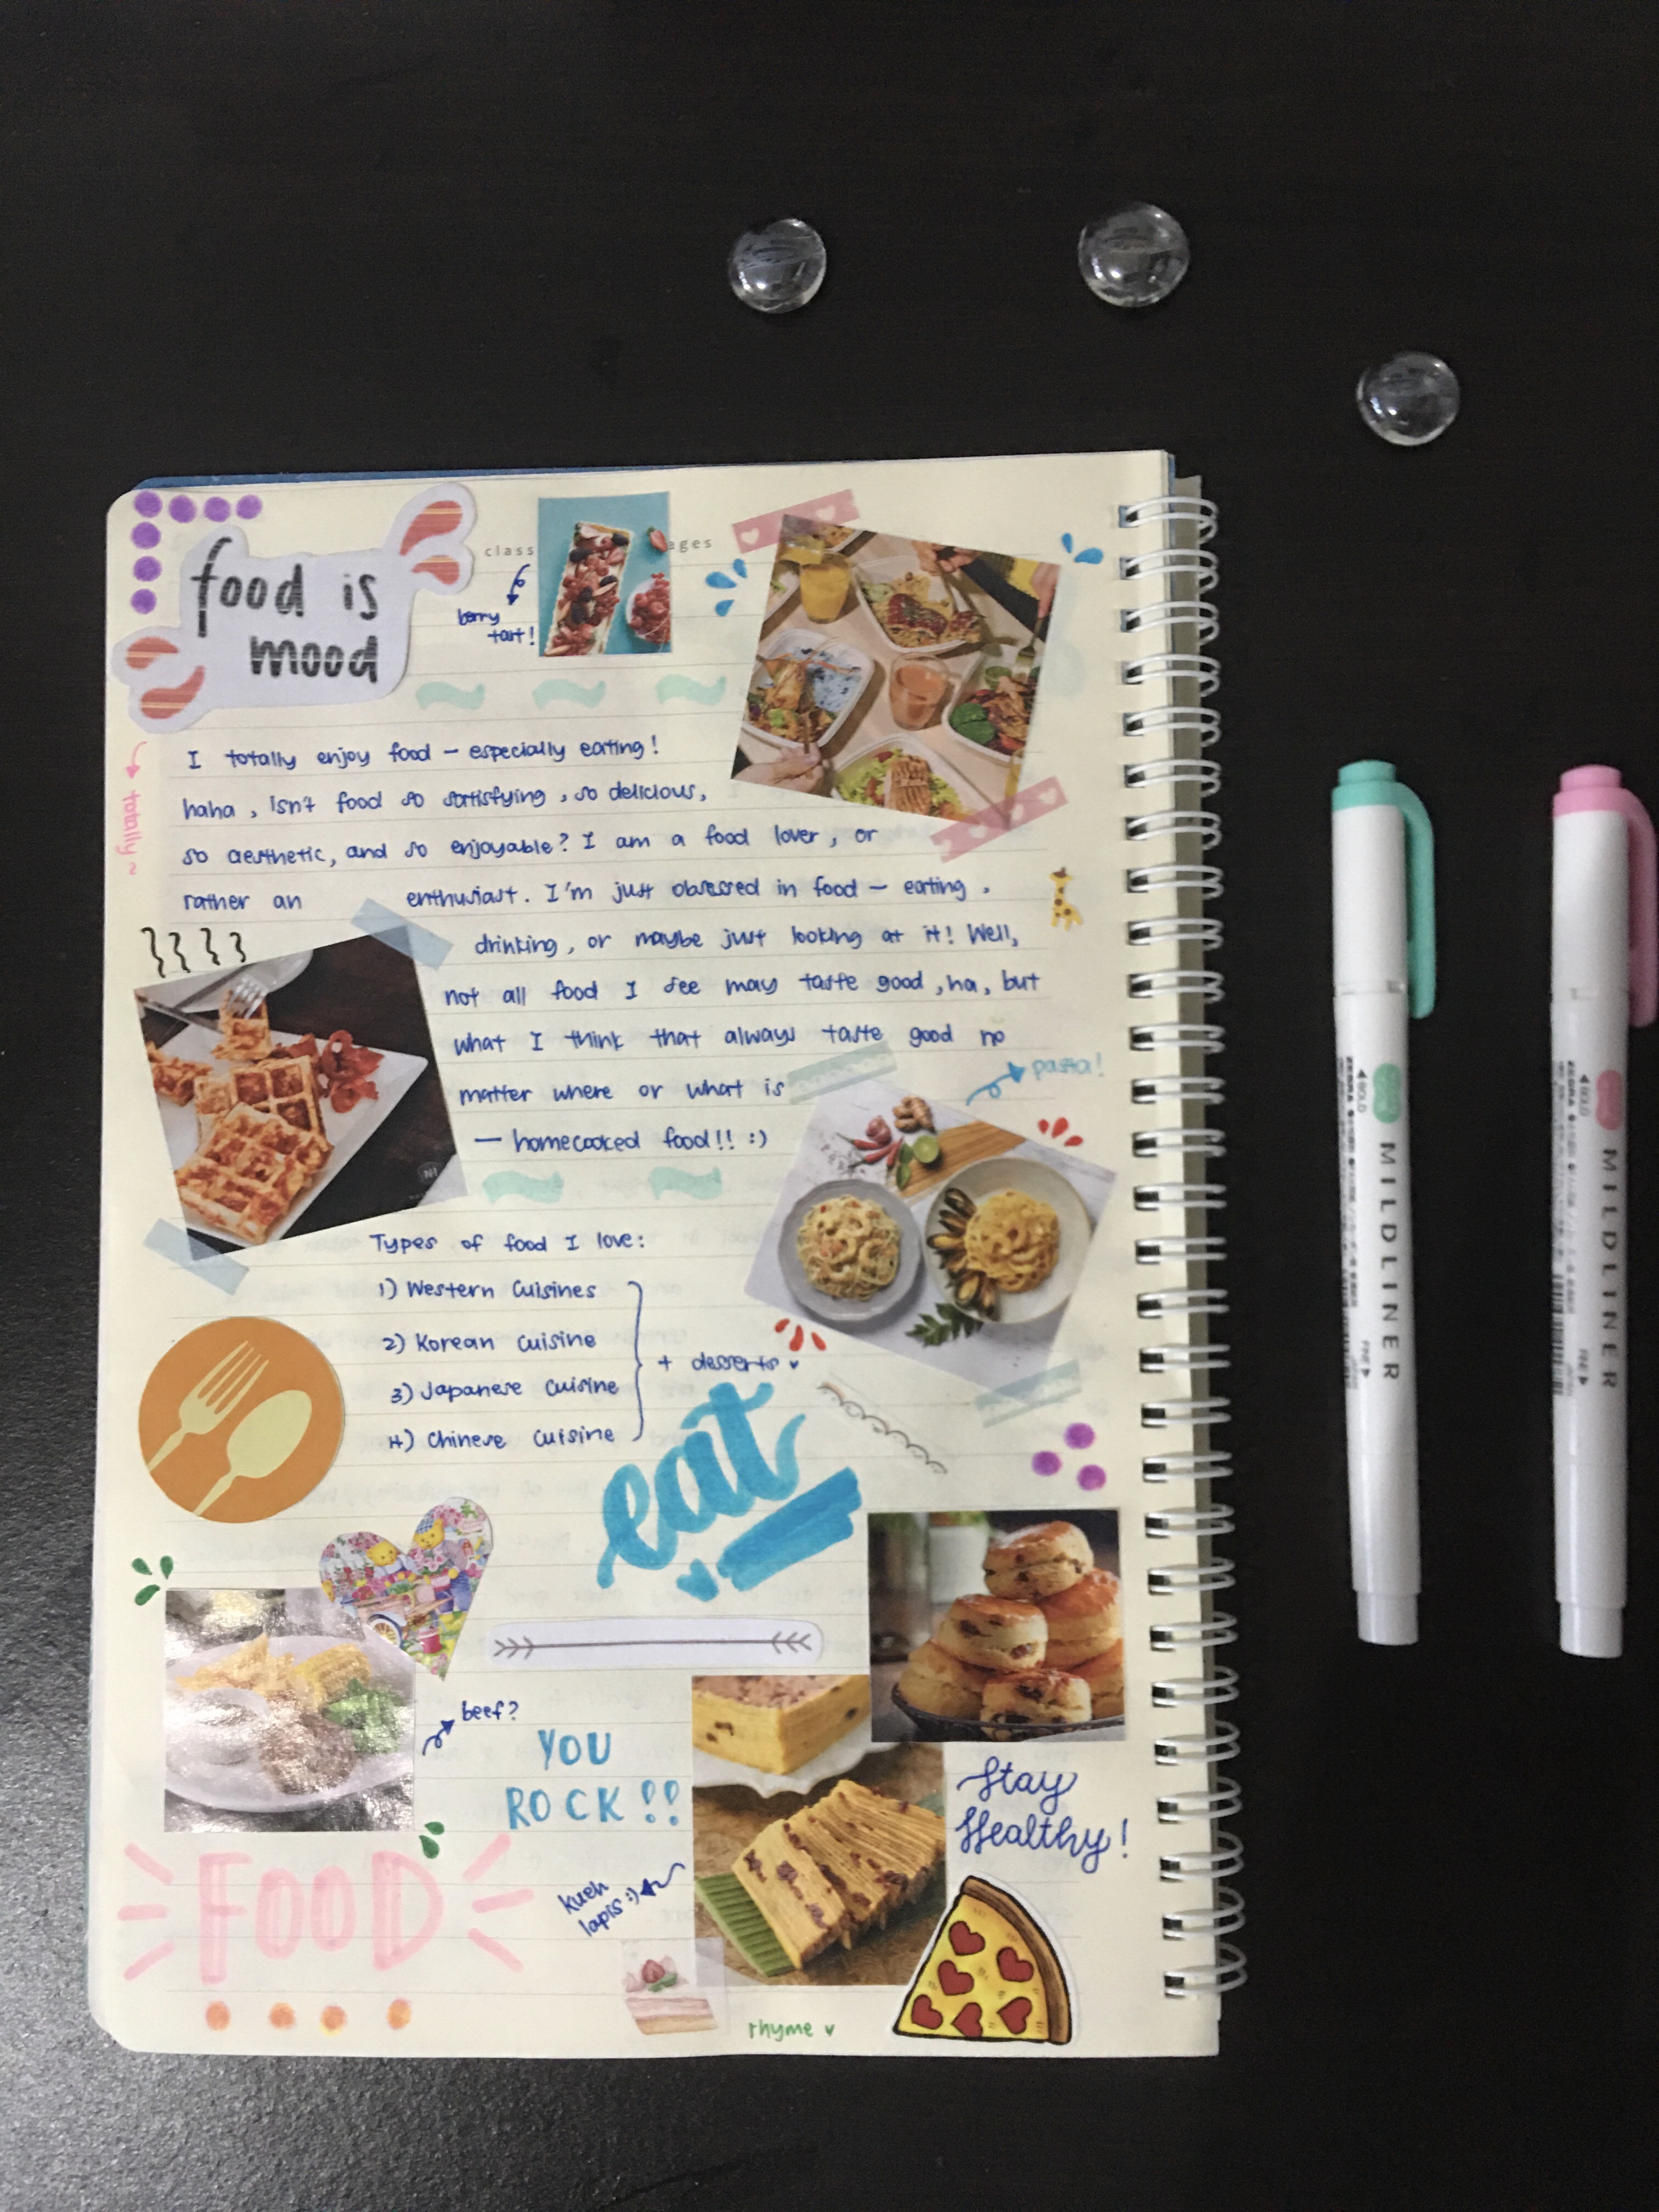 food is
mood
class
ages
berry
tart!
totally~
I totally enjoy food – especially eating!
haha, isn't food so satisfying, so delicious,
so aesthetic, and so enjoyable? I am a food lover, or
rather an enthusiast. I'm just obsessed in food – eating,
drinking, or maybe just looking at it! Well,
not all food I see may taste good, ha, but
what I think that always taste good no
matter where or what is
– homecooked food!! :)
pasta!
Types of food I love:
1) Western Cuisines
2) Korean Cuisine
3) Japanese Cuisine
4) Chinese Cuisine
+ desserts
eat
beef?
YOU
ROCK!!
Stay
Healthy!
kueh
lapis :)
FOOD
rhyme
BOLD
MILDLINER
FINE
BOLD
MILDLINER
FINE